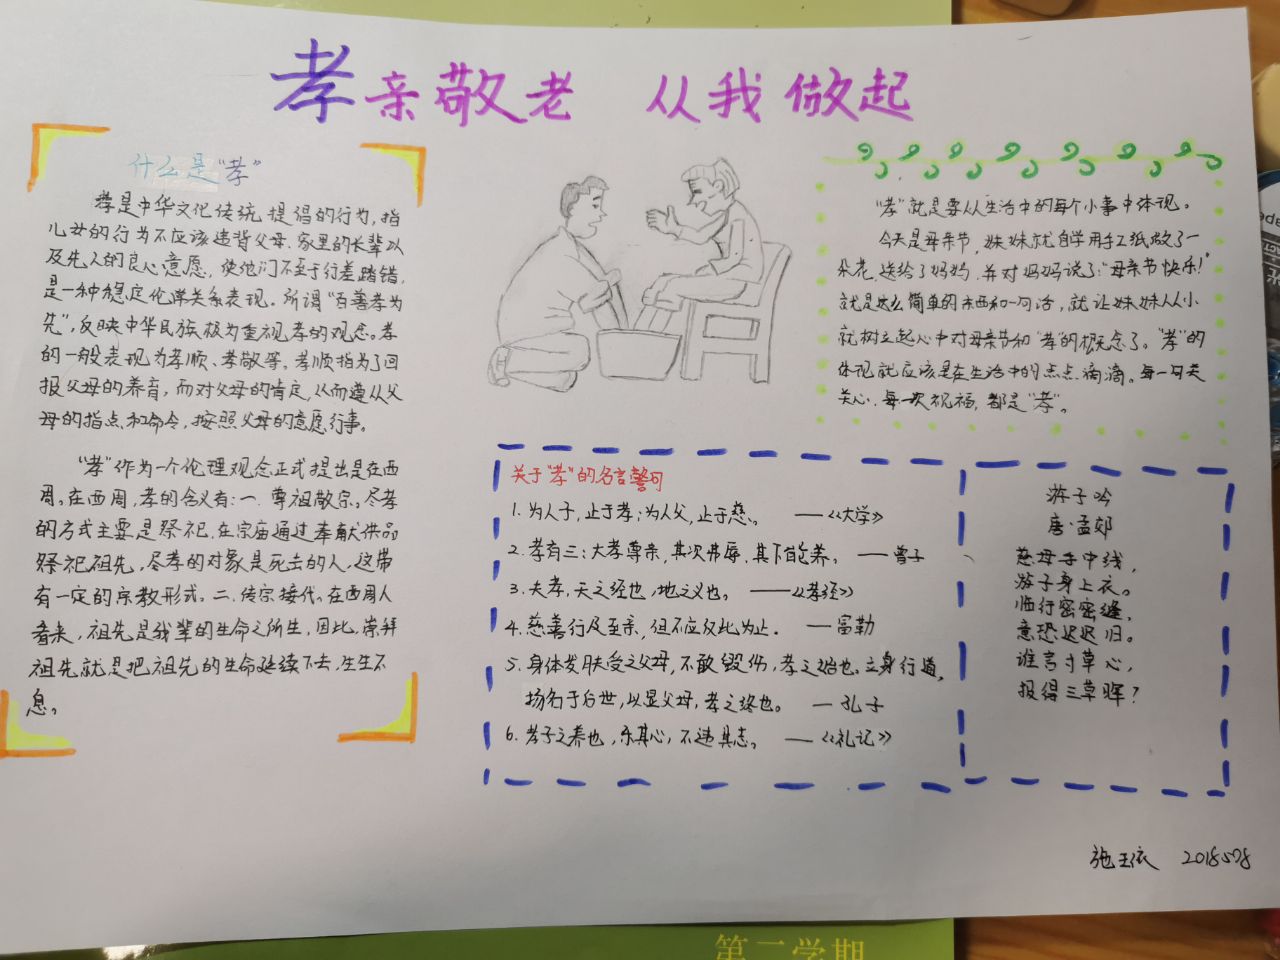 孝亲敬老 从我做起
什么是"孝"
孝是中华文化传统提倡的行为,指
儿女的行为不应该违背父母、家里的长辈以
及先人的良心意愿,使他们不至于行差踏错,
是一种稳定伦常关系表现。所谓"百善孝为
先",反映中华民族极为重视孝的观念。孝
的一般表现为孝顺、孝敬等。孝顺指为了回
报父母的养育,而对父母的肯定,从而遵从父
母的指点和命令,按照父母的意愿行事。
"孝"作为一个伦理观念正式提出是在西
周。在西周,孝的含义有:一.尊祖敬宗。尽孝
的方式主要是祭祀,在宗庙通过奉献供品
祭祀祖先,尽孝的对象是死去的人,这带
有一定的宗教形式。二.传宗接代。在西周人
看来,祖先是我辈的生命之所生,因此,崇拜
祖先就是把祖先的生命延续下去,生生不
息。
"孝"就是要从生活中的每个小事中体现。
今天是母亲节,妹妹就自学用手工纸做了一
朵花,送给了妈妈,并对妈妈说了:"母亲节快乐!"
就是这么简单的东西和一句话,就让妹妹从小
就树立起心中对母亲节和"孝"的概念了。"孝"的
体现就应该是在生活中的点点滴滴。每一句关
关心、每一次祝福,都是"孝"。
关于"孝"的名言警句
1.为人子,止于孝;为人父,止于慈。 ——《大学》
2.孝有三:大孝尊亲,其次弗辱,其下能养。 ——曾子
3.夫孝,天之经也,地之义也。 ——《孝经》
4.慈善行及至亲,但不应仅此为止. —富勒
5.身体发肤受之父母,不敢毁伤,孝之始也。立身行道,
扬名于后世,以显父母,孝之终也。 —孔子
6.孝子之养也,乐其心,不违其志。 ——《礼记》
游子吟
唐·孟郊
慈母手中线,
游子身上衣。
临行密密缝,
意恐迟迟归。
谁言寸草心,
报得三草晖?
2018578
第二学期